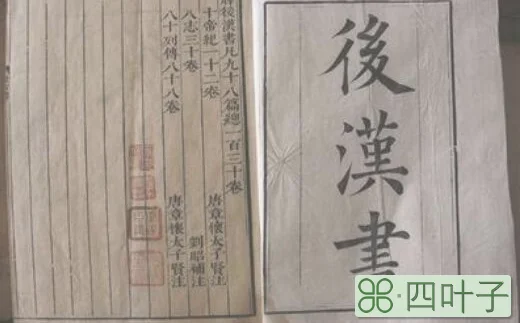 後漢書
後漢書凡九十八篇總一百三十卷
十帝紀一十二卷 唐章懷太子賢注
八志三十卷 劉昭補注
八十列傳八十八卷 唐章懷太子賢注
四叶子